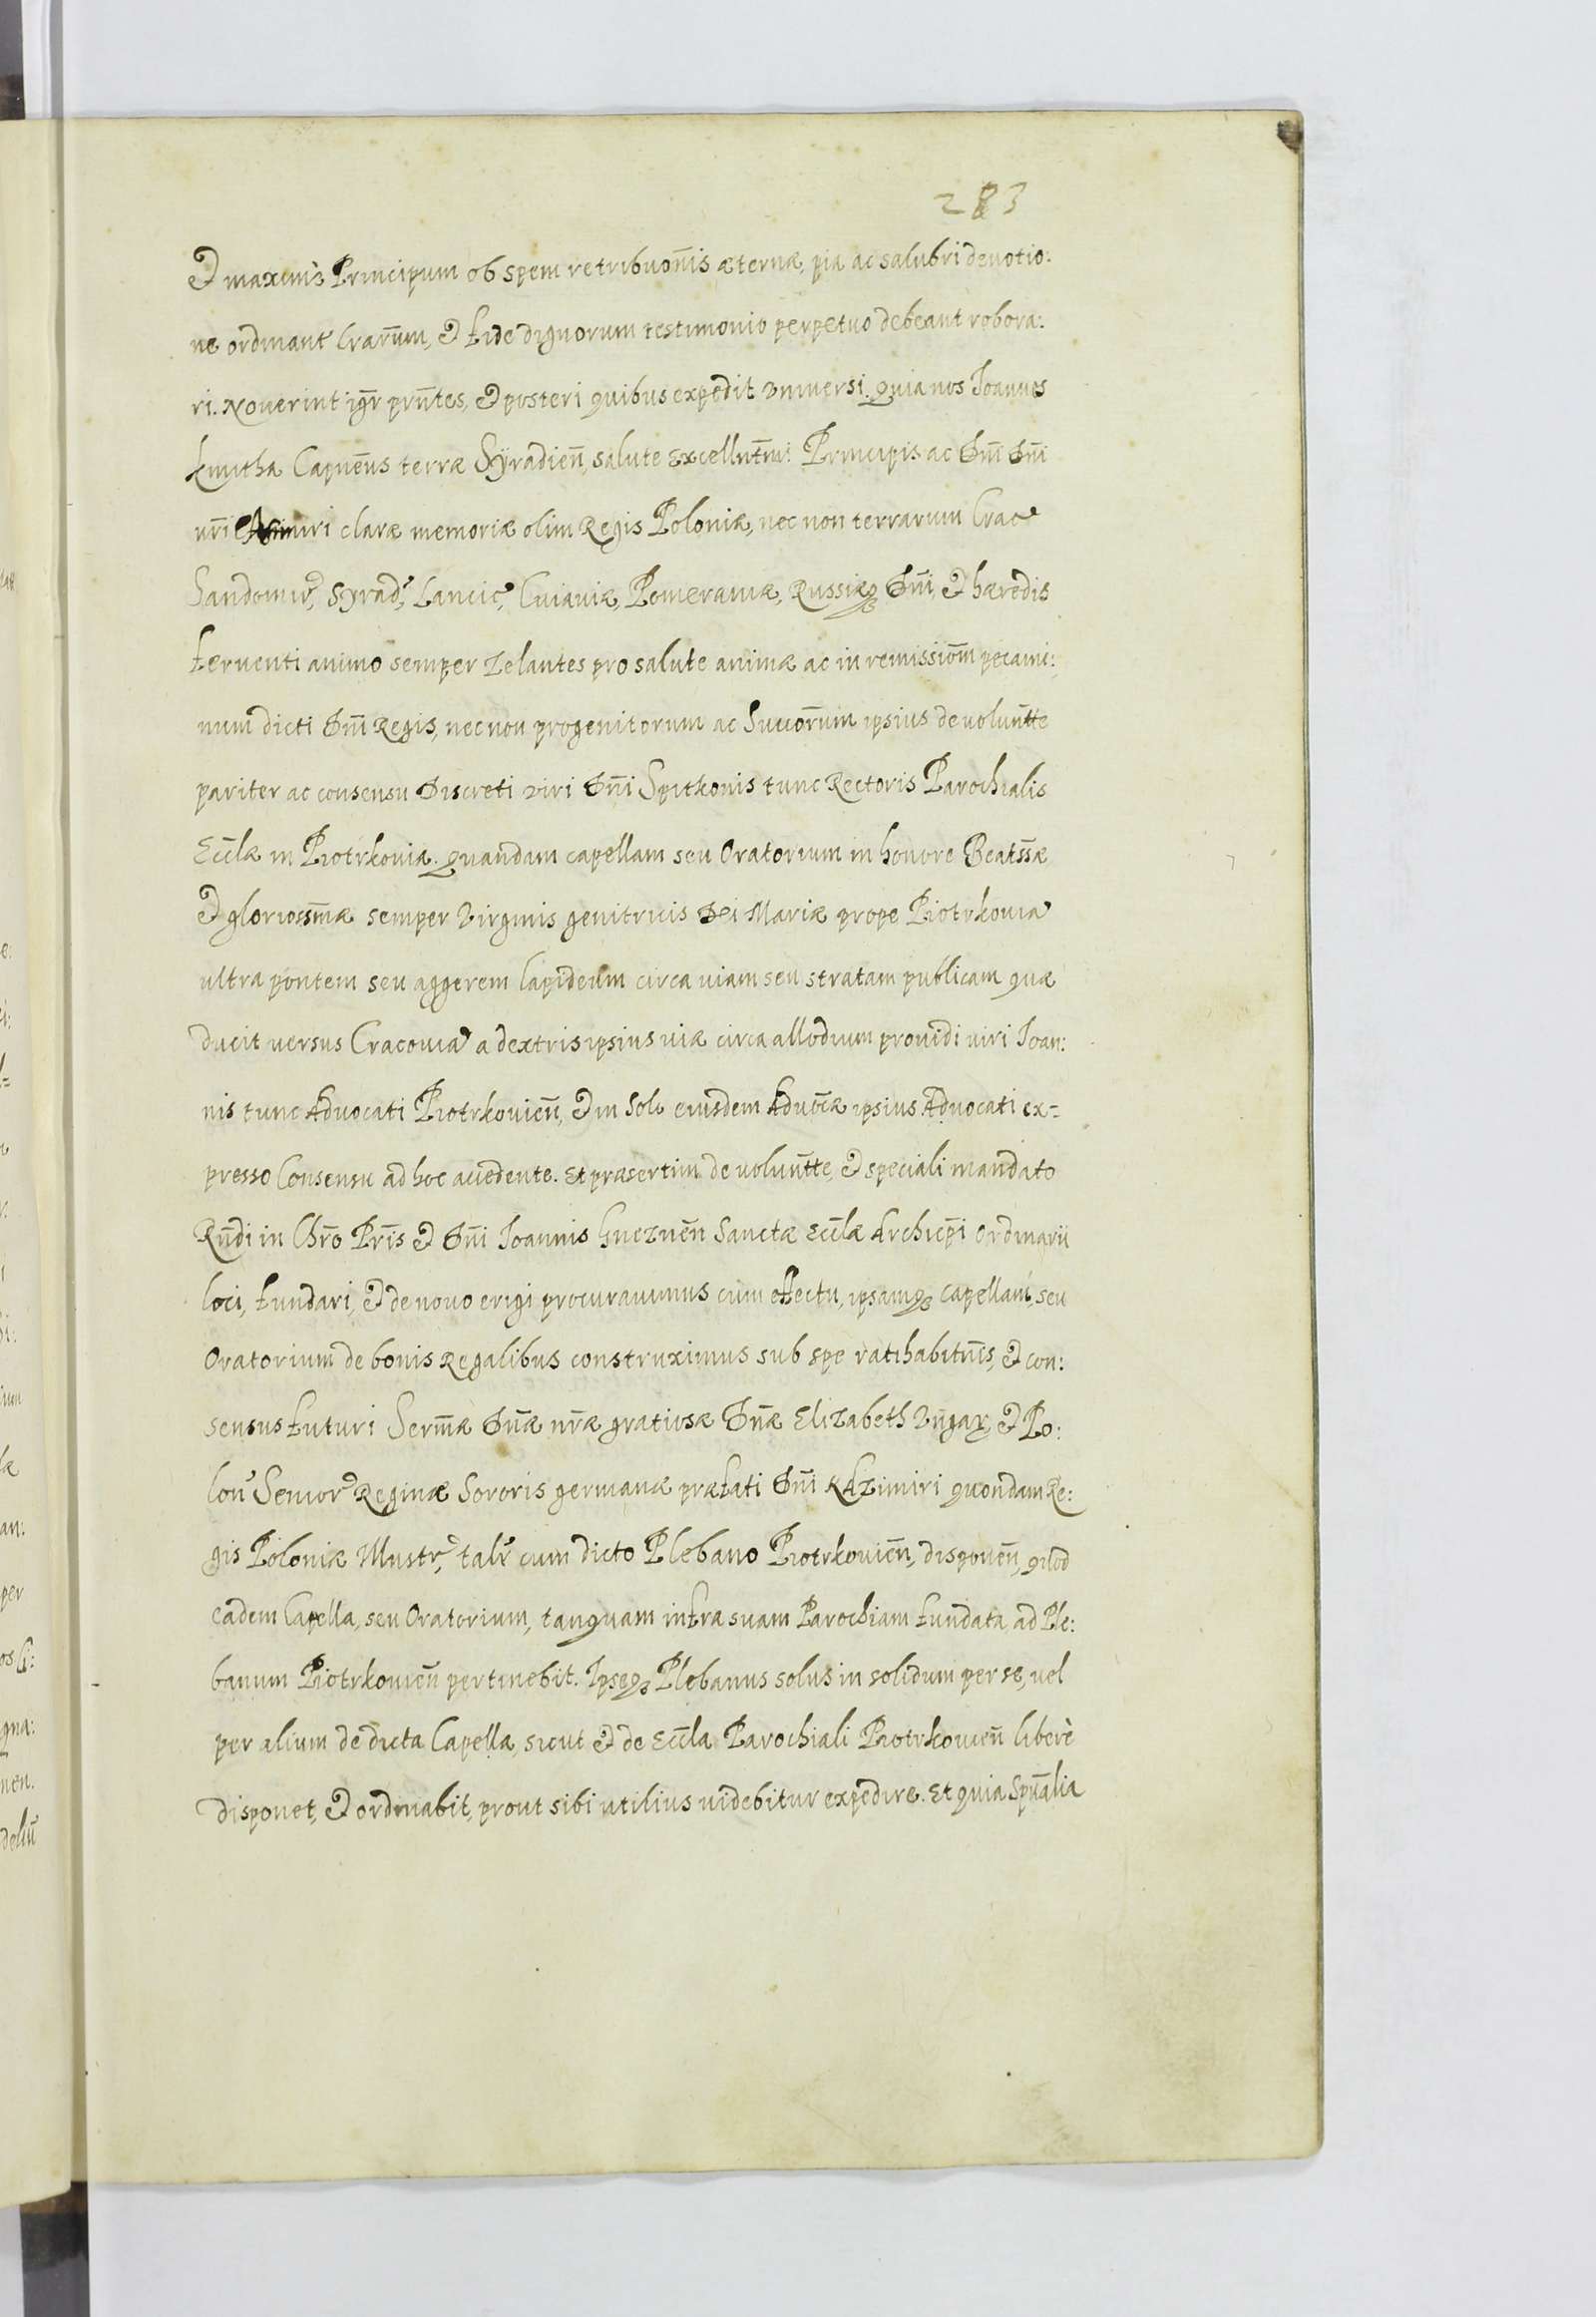 283
& maximè Principum ob spem retribuoñis æternæ, pia ac salubri deuotio:
ne ordinant lrarum, & fide dignorum testimonio perpetuo debeant robora:
ri. Nouerint igr̃ prñtes, & posteri quibus expedit vniuersi. Quia nos Joannes
kmitha Capnẽus terræ Syradieñ, salute Excellñtmi Principis ac Dñi Dñi
nr̃i claræ memoriæ olim Regis Poloniæ, nec non terrarum Crac
Sandomir, Syrad, Lancic, Cuiauiæ, Pomeraniæ, Russiæq Dñi, & hæredis
feruenti animo semper zelantes pro salute animæ ac in remissiom̃ pecami:
num dicti Dñi Regis, nec non progenitorum ac Succorum ipsius de volunt̃te
pariter ac consensu Discreti viri Dñi Spitkonis tunc Rectoris Parochialis
Ecclæ in Piotrkouia. Quandam capellam seu Oratorium in honore Beatss̃æ
& gloriossm̃æ semper Virginis genitricis Dei Mariæ prope Piotrkouia
ultra pontem seu aggerem lapideum circa uiam seu stratam publicam quæ
ducit uersus Cracouia a dextris ipsius uiæ circa allodium prouidi uiri Joan:
nis tunc Aduocati Piotrkouieñ, & in Solo eiusdem Aduoc̃æ ipsius Aduocati ex-
presso Consensu ad hoc accedente. Et præsertim de volunt̃te, & speciali mandato
Rñdi in Chr̃o Pr̃is & Dñi Joannis Gnezneñ Sanctæ Ecclæ Archiep̃i Ordinarii
loci, fundari, & de nouo erigi procurauimus cum effectu, ipsamq capellam, seu
Oratorium de bonis Regalibus construximus sub spe ratihabitñis, & con:
sensus futuri Serm̃æ Dñæ nr̃æ gratiosæ Dñæ Elizabeth Vngar, & Po:
lon Senior Reginæ Sororis germanæ præfati Dñi Kazimiri quondam Re:
gis Poloniæ Illustr, talr̃ cum dicto Plebano Piotrkouieñ, disponeñ, quod
eadem Capella, seu Oratorium, tanquam infra suam Parochiam fundata, ad Ple:
banum Piotrkouieñ pertinebit. Ipseq Plebanus solus in solidum per se, uel
per alium de dicta Capella, sicut & de Eccla Parochiali Piotrkouieñ liberè
disponet, & ordinabit, prout sibi utilius uidebitur expedire. Et quia Spũalia